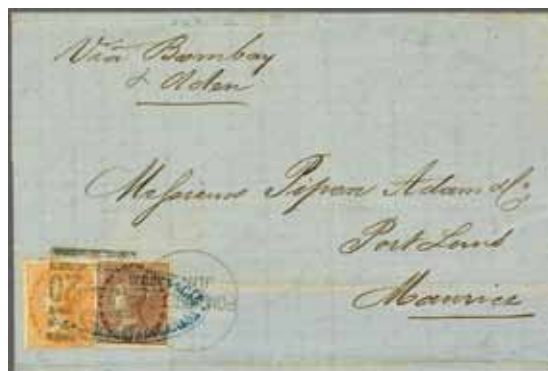 Via Bombay
& Aden
Messieurs Pipon Adam & Co
Port Louis
Maurice